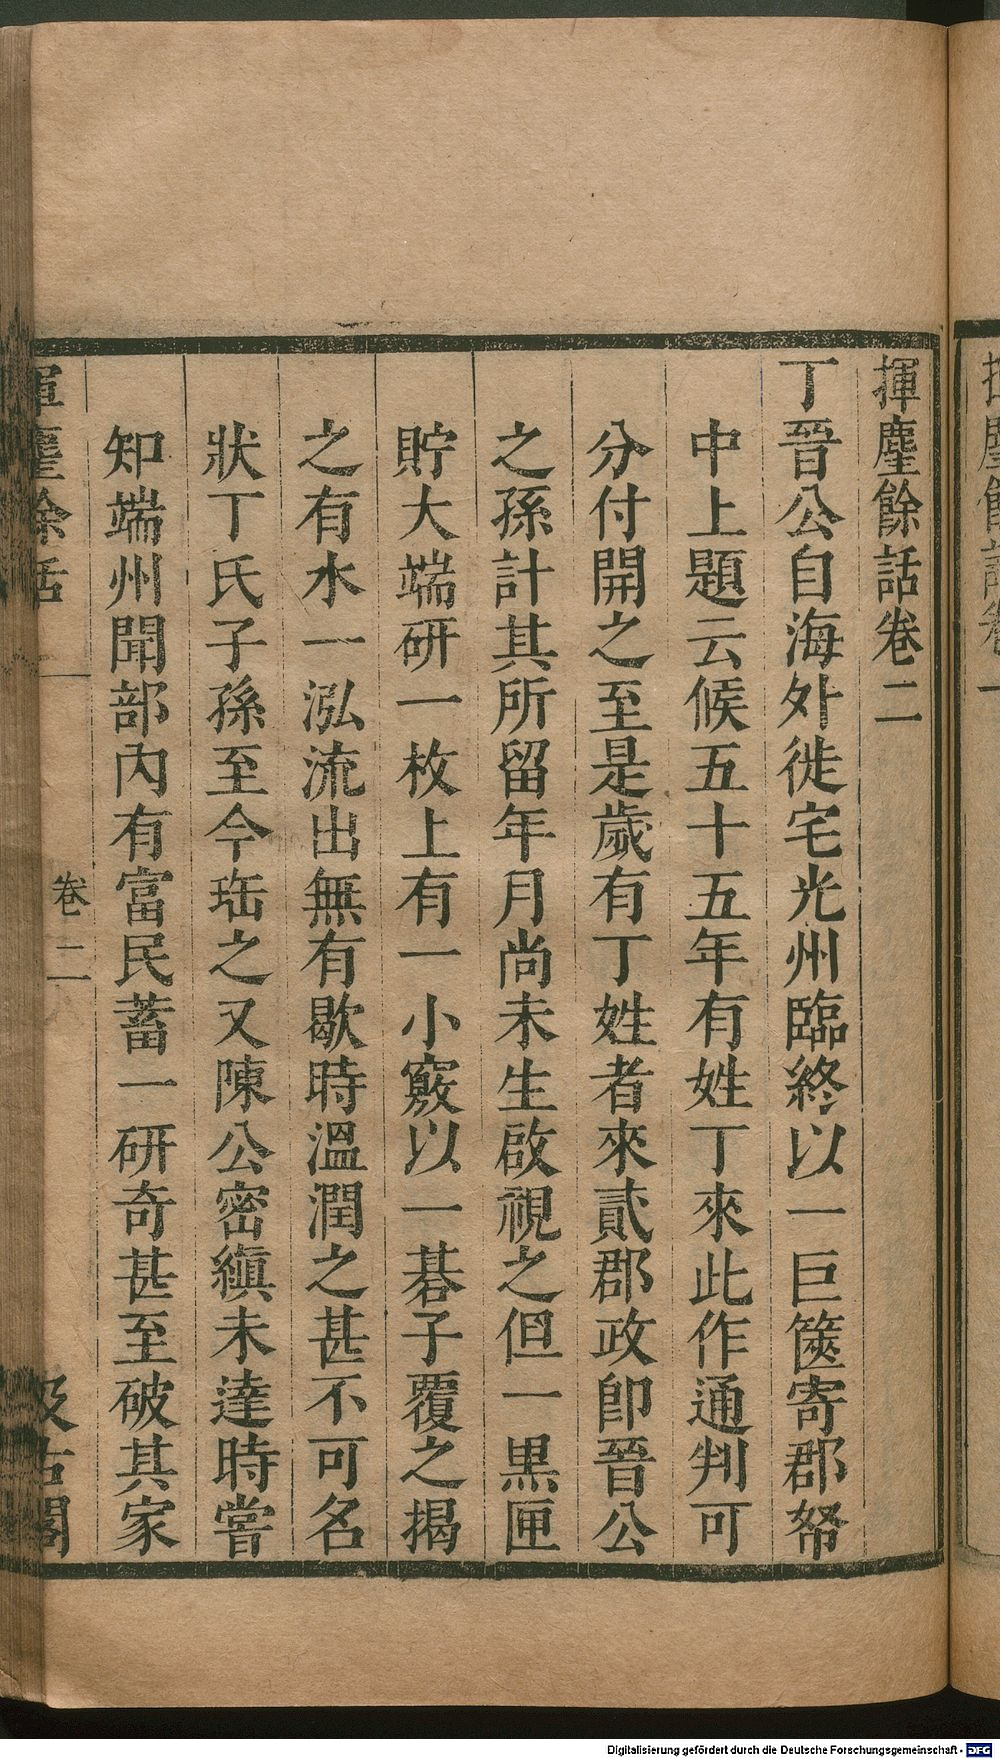 揮麈餘話卷二
丁晉公自海外徙宅光州臨終以一巨篋寄郡帑
中上題云候五十五年有姓丁來此作通判可
分付開之至是歲有丁姓者來貳郡政卽晉公
之孫計其所留年月尚未生啟視之但一黑匣
貯大端研一枚上有一小竅以一碁子覆之揭
之有水一泓流出無有歇時溫潤之甚不可名
狀丁氏子孫至今珤之又陳公密縝未達時嘗
知端州聞部內有富民蓄一研奇甚至破其家
揮麈餘話
卷二
汲古閣
Digitalisierung gefördert durch die Deutsche Forschungsgemeinschaft - DFG